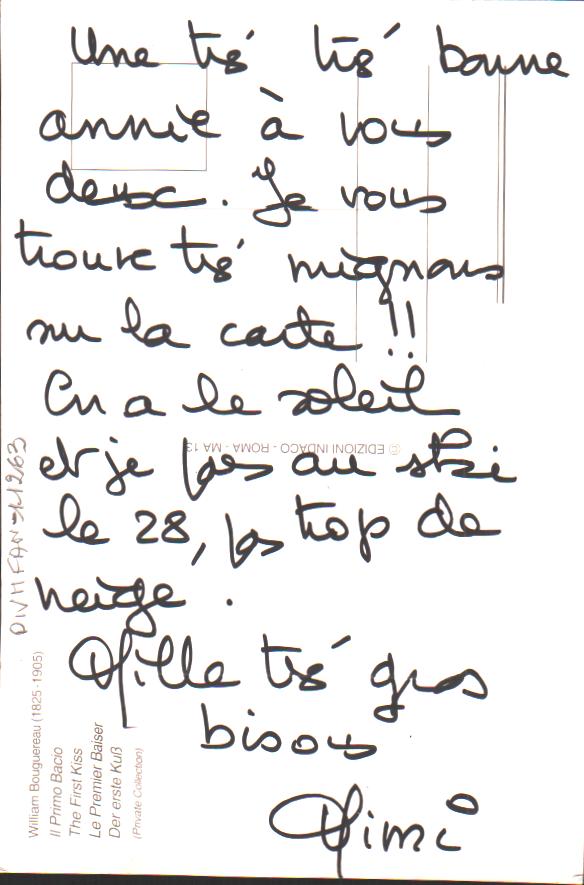 Une très très bonne
année à vous
deux. Je vous
trouve très mignons
sur la carte !!
On a le soleil
et je pars au ski
le 28, ps trop de
neige.
Mille très gros
bisous
Mimi
© EDIZIONI INDACO - ROMA - MA 13
William Bouguereau (1825-1905)
Il Primo Bacio
The First Kiss
Le Premier Baiser
Der erste Kuß
(Private Collection)